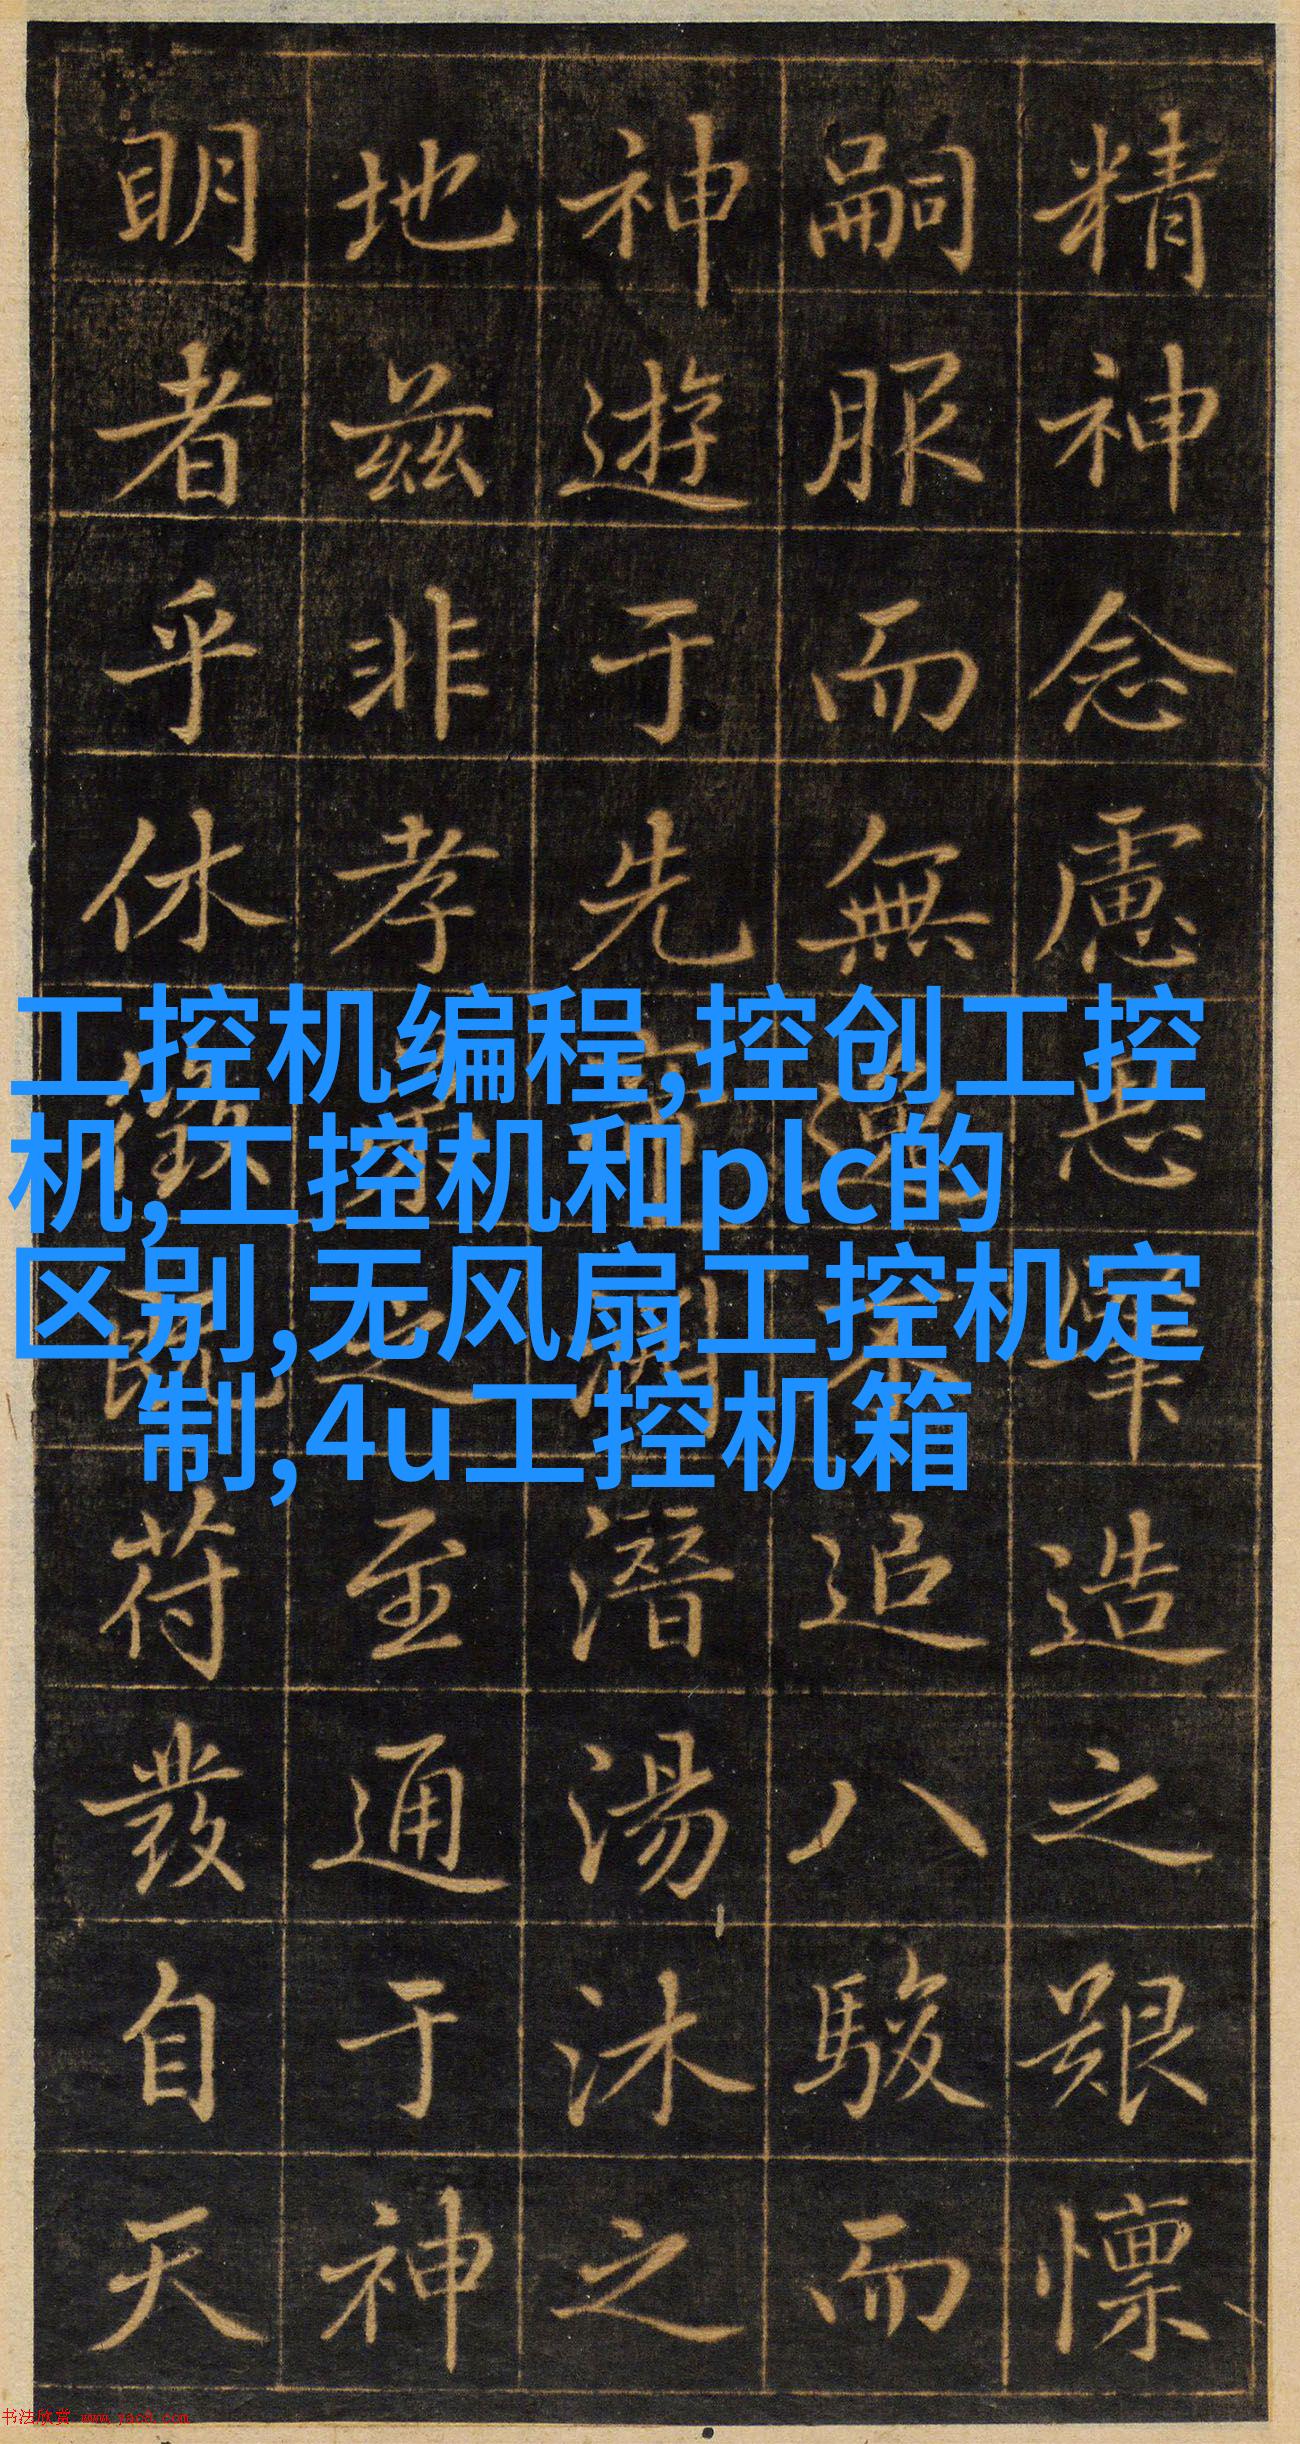 精神念慮造之艱懍
嗣服而無追八駿而
神遊于先潜湯沐之
地兹非孝之至通于神
明者乎休徵既苻發自天
工控机编程,控创工控
机,工控机和plc的
区别,无风扇工控机定
制,4u工控机箱
书法欣赏 www.yac8.com